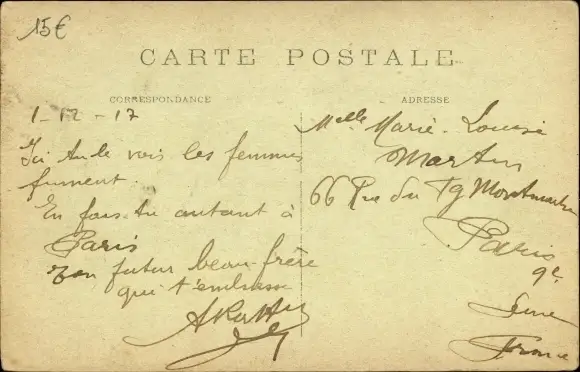 15€
CARTE POSTALE
CORRESPONDANCE
1-12-17
Ici tu le vois les femmes
fument.
En fais-tu autant à
Paris
Ton futur beau-frère
qui t'embrasse
ADRESSE
Melle Marie-Louise
Martin
66 Rue du Fg Montmartre
Paris
9e
Seine
France